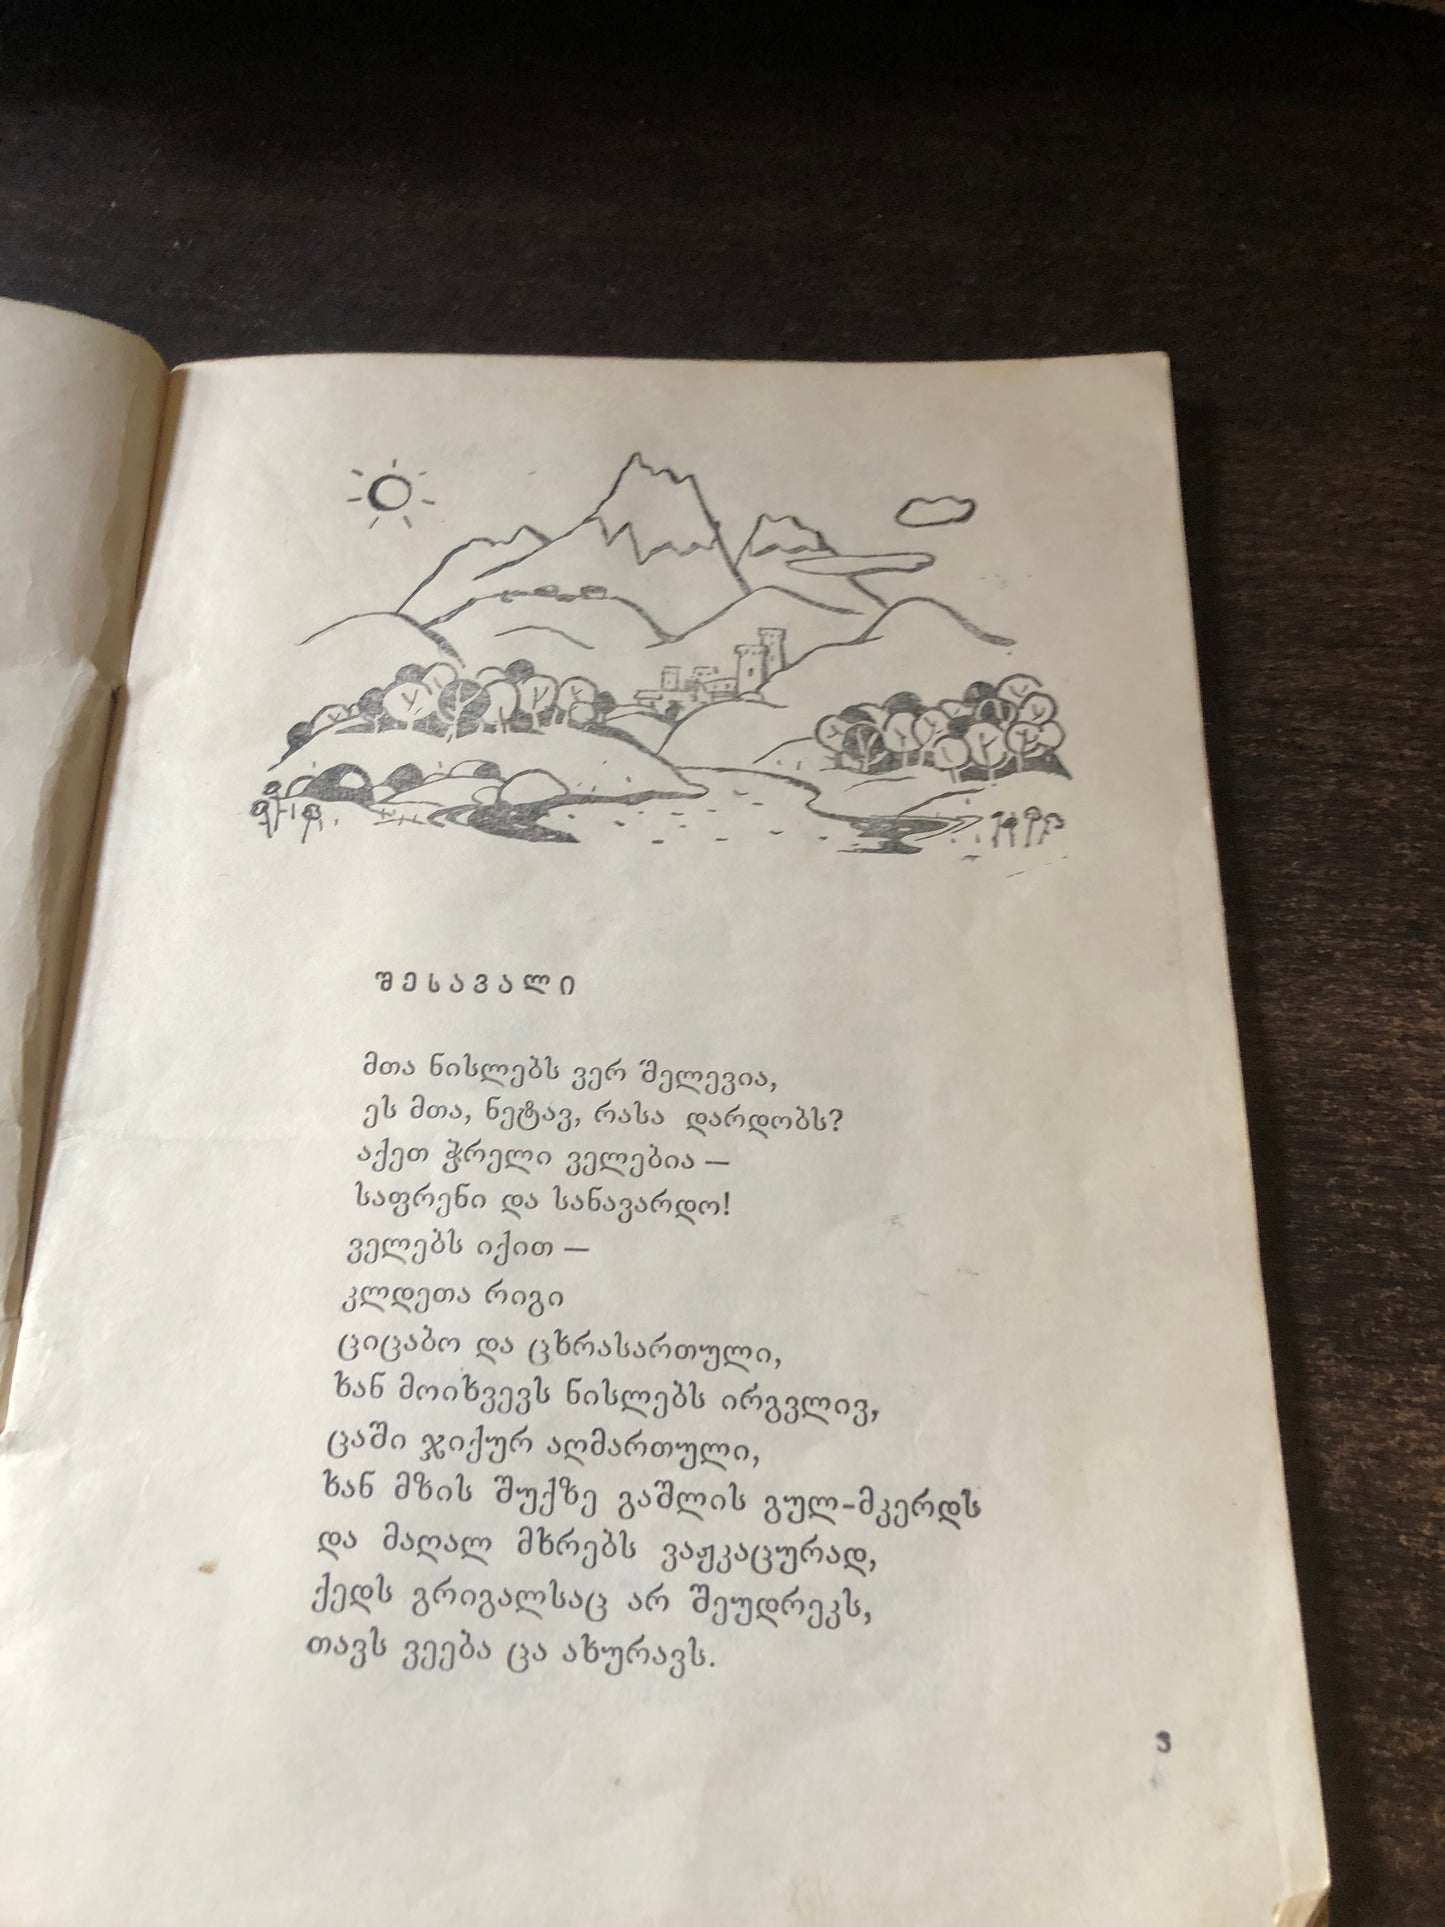 შესავალი
მთა ნისლებს ვერ შელევია,
ეს მთა, ნეტავ, რასა დარდობს?
აქეთ ჭრელი ველებია —
საფრენი და სანავარდო!
ველებს იქით —
კლდეთა რიგი
ციცაბო და ცხრასართული,
ხან მოიხვევს ნისლებს ირგვლივ,
ცაში ჯიქურ აღმართული,
ხან მზის შუქზე გაშლის გულ-მკერდს
და მაღალ მხრებს ვაჟკაცურად,
ქედს გრიგალსაც არ შეუდრეკს,
თავს ვეება ცა ახურავს.
3